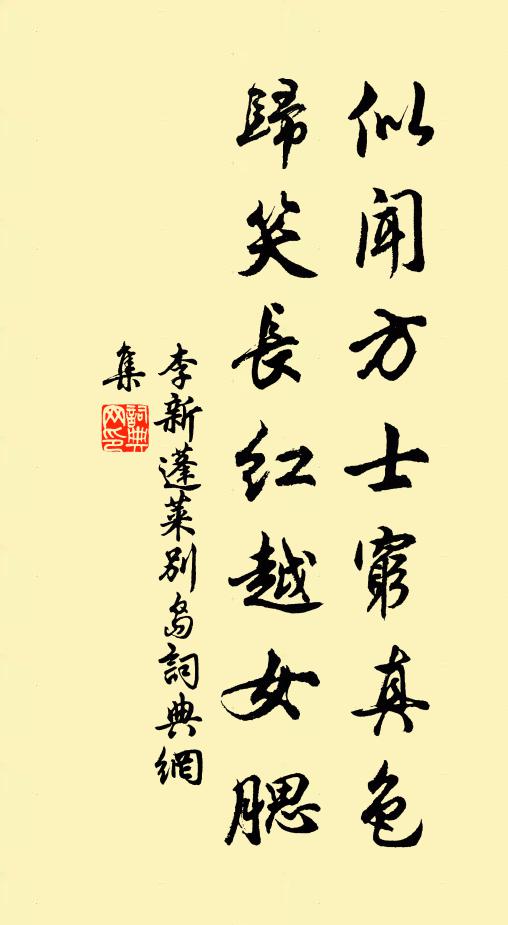 似闻方士窮真色
歸笑長红越女腮
李新蓬萊别島詞典網
集
詞典网印